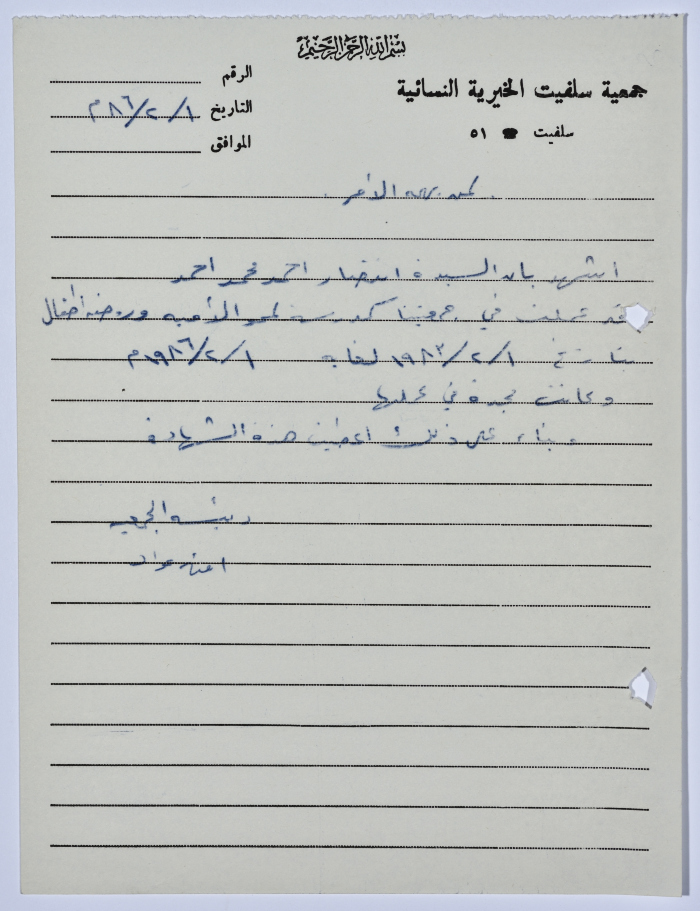 بسم الله الرحمن الرحيم
جمعية سلفيت الخيرية النسائية
سلفيت ☎ ٥١
الرقم
التاريخ ١/٢/٨٦م
الموافق
لمن يهمه الأمر
أشهد بان السيدة انتصار احمد محمد احمد
قد عملت في جمعيتنا كمدرسة لمحو الأمية وروضة أطفال
بتاريخ ١/٢/١٩٨٣ لغاية ١/٢/١٩٨٦م
وكانت مجدة في عملها
وبناء على ذلك اعطيت هذه الشهادة
رئيسة الجمعية